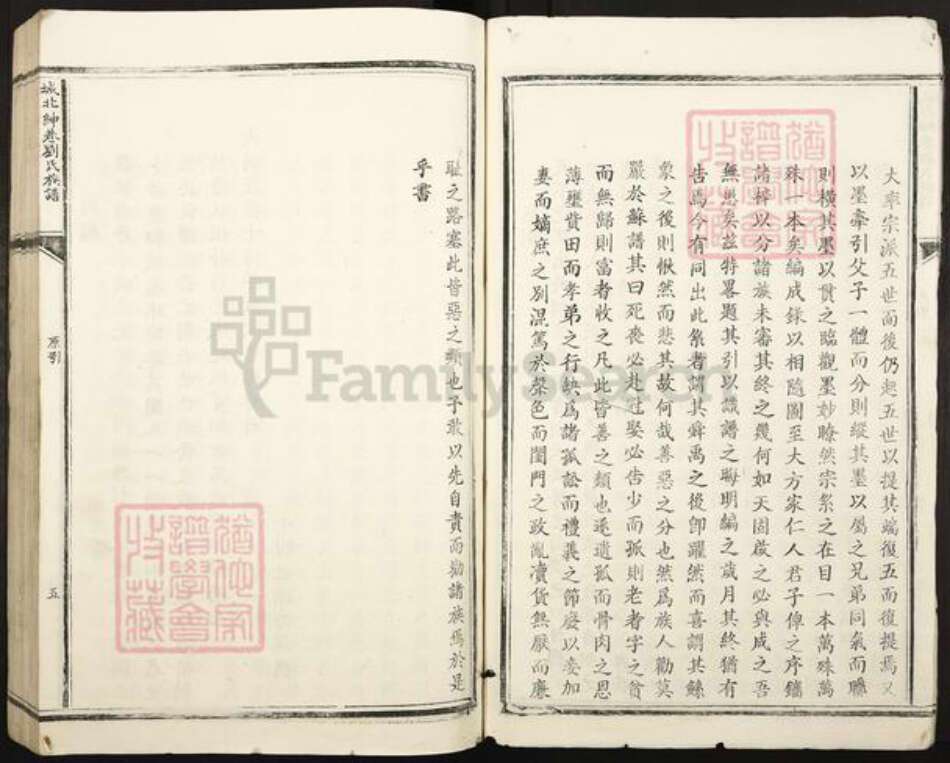 大率宗派五世而後仍起五世以提其端復五而復提焉又
以墨牽引父子一體而分則縱其墨以屬之兄弟同氣而聯
則橫其墨以貫之臨觀墨妙瞭然宗系之在目一本萬殊萬
殊一本矣編成錄以相隨圖至大方家仁人君子俾之序鐫
諸梓以分諸族未審其終之幾何如天固啟之必與成之吾
無患矣茲特畧題其引以識譜之晦明編之歲月其終猶有
告焉今有同出此系者謂其舜禹之後卽躍然而喜謂其鯀
象之後則愀然而悲其故何哉善惡之分也然爲族人勸莫
嚴於蘇譜其曰死喪必赴冠娶必告少而孤則老者字之貧
而無歸則富者收之凡此皆善之類也逐遺孤而骨肉之恩
薄壟貲田而孝弟之行缺爲諸孤訟而禮義之節廢以妾加
妻而嫡庶之別混篤於聲色而閨門之政亂瀆貨無厭而廉
恥之路塞此皆惡之類也予敢以先自責而勉諸族焉於是
乎書
城北紳巷劉氏族譜
原引
五
FamilySearch